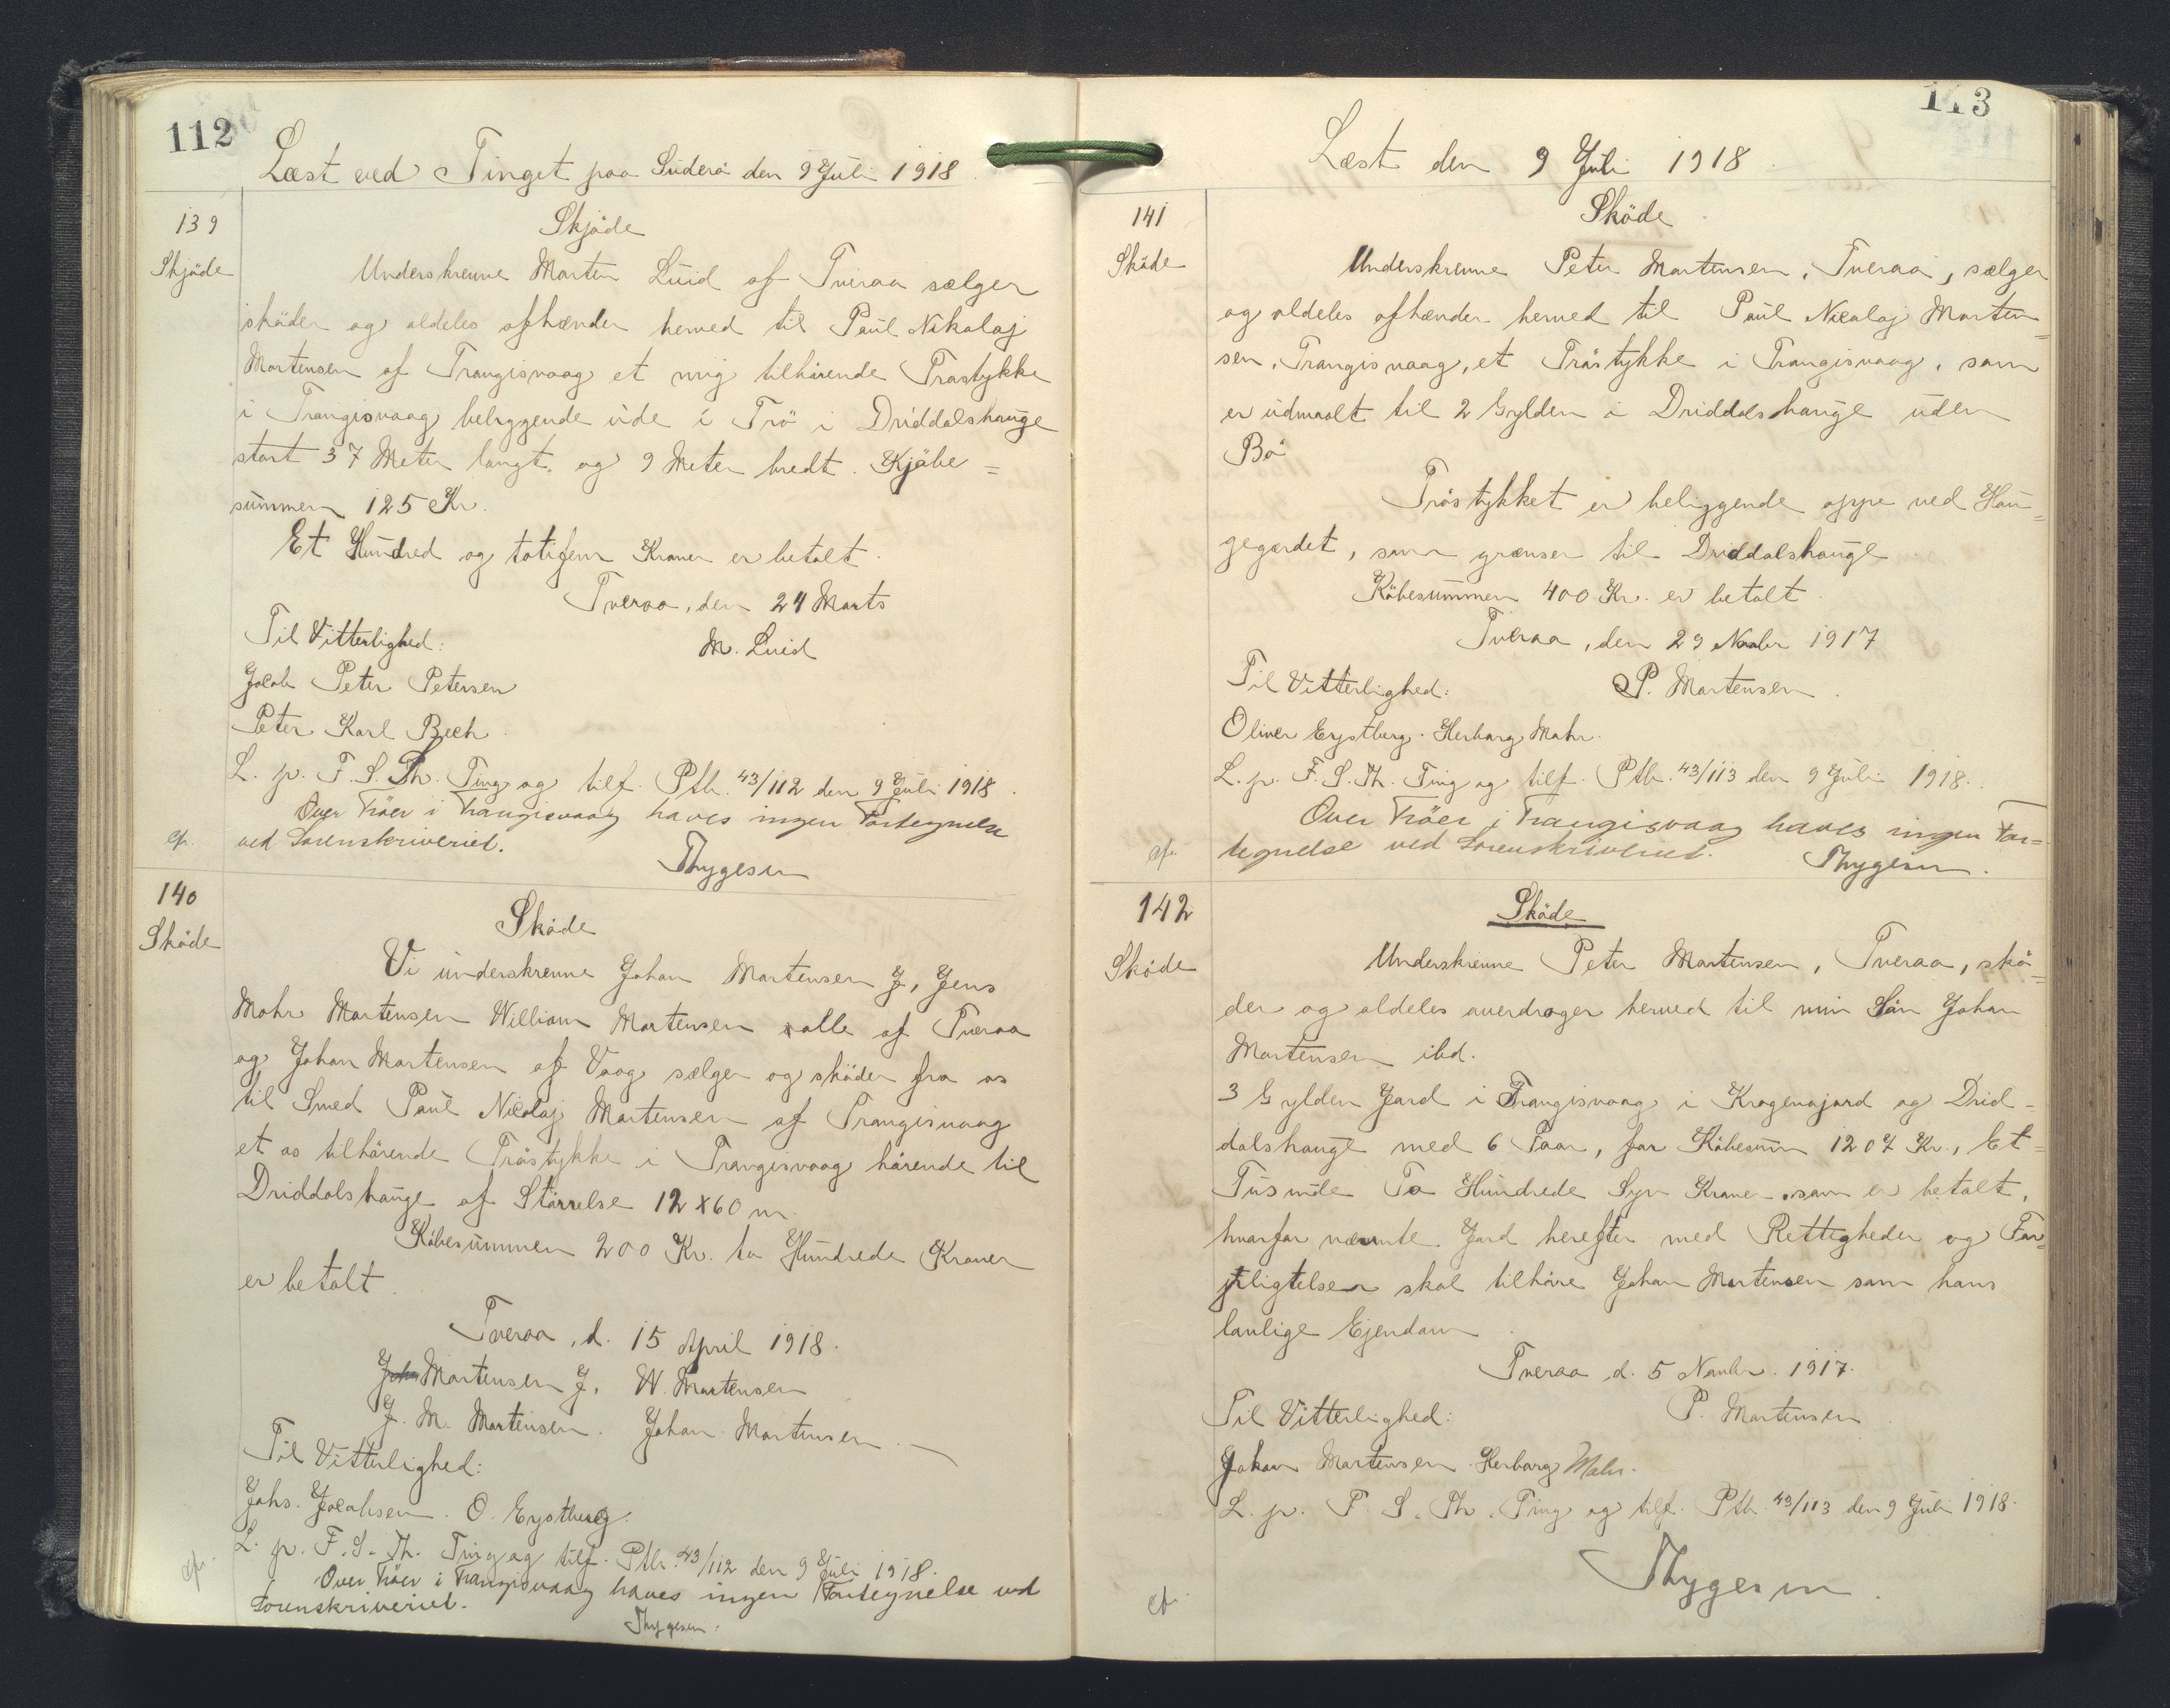 112
Læst ved Tinget paa Süderö den 9 Jüli 1918.
139
Skjöde
Skjöde
Underskrevne Morten Lüid af Tveraa sælger
sköder og aldeles afhænder herved til Paül Nikolaj
Mortensen af Trangisvaag et mig tilhörende Tröstykke
i Trangisvaag beliggende üde i Trö i Driddalshauge
stort 37 Meter langt og 9 Meter bredt. Kjöbe=
sümmen 125 Kr.
Et Hündred og totifem Kroner er betalt.
Tveraa, den 24 Marts
Til Vitterlighed: M. Luid
Jacob Peter Petersen
Peter Karl Bech.
L. p. F. S. Th. Ting og tilf. Ptb. 43/112 den 9 Jüli 1918.
Over Tröer i Trangisvaag haves ingen Fortegnelse
cf. ved Sorenskriveriet.
Thygesen
140
Sköde
Sköde
Vi ünderskrevne Johan Mortensen J, Jens
Mohr Mortensen William Mortensen alle af Tveraa
og Johan Mortensen af Vaag sælger og sköder fra os
til Smed Paül Nicolaj Mortensen af Trangisvaag
et os tilhörende Tröstykke i Trangisvaag hörende til
Driddalshauge af Störrelse 12 x 60 m.
Köbesümmen 200 Kr. to Hündrede Kroner
er betalt.
Tveraa, d. 15 April 1918.
Joh. Mortensen J. W. Mortensen
J. M. Mortensen. Johan Mortensen.
Til Vitterlighed:
Johs. Jacobsen. O. Eystberg.
L. p. F. S. Th. Ting og tilf. Ptb. 43/112 den 9 Jüli 1918.
cf. Over Tröer i Trangisvaag haves ingen Fortegnelse ved
Sorenskriveriet.
Thygesen.
113
Læst den 9 Jüli 1918.
141
Sköde
Sköde
Underskrevne Peter Mortensen, Tveraa, sælger
og aldeles afhænder herved til Paül Nicolaj Morten=
sen, Trangisvaag, et Tröstykke i Trangisvaag, som
er üdmaalt til 2 Gylden i Driddalshauge üden
Bö
Tröstykket er beliggende oppe ved Hau=
gegærdet, som grænser til Driddalshauge.
Köbesümmen 400 Kr. er betalt.
Tveraa, den 29 Novbr 1917
Til Vitterlighed: P. Mortensen.
Oliver Eystberg. Herborg Mohr.
L. p. F. S. Th. Ting og tilf. Ptb. 43/113 den 9 Jüli 1918.
Over Tröer i Trangisvaag haves ingen For=
cf. tegnelse ved Sorenskriveriet. Thygesen.
142
Sköde
Sköde
Underskrevne Peter Mortensen, Tveraa, skö=
der og aldeles overdrager herved til min Sön Johan
Mortensen ibd.
3 Gylden Jord i Trangisvaag i Krogenajord og Drid=
dalshauge med 6 Faar, for Köbesüm 1207 Kr., Et=
Tüsinde To Hündrede Syv Kroner, som er betalt,
hvorfor nævnte Jord herefter med Rettigheder og For=
pligtelser skal tilhöre Johan Mortensen som hans
lovlige Ejendom.
Tveraa d. 5 Novbr. 1917.
Til Vitterlighed: P. Mortensen.
Johan Mortensen. Herborg Mohr.
L. p. F. S. Th. Ting og tilf. Ptb. 43/113 den 9 Jüli 1918.
Thygesen.
cf.